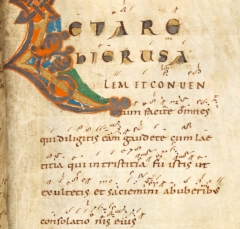 LETARE
HIERUSA
LEM ET CONVEN
tum facite omnes
qui diligitis eam gaudete cum lae
titia qui in tristitia fuistis ut
exultetis et saciemini ab uberibus
consolatio nis eius